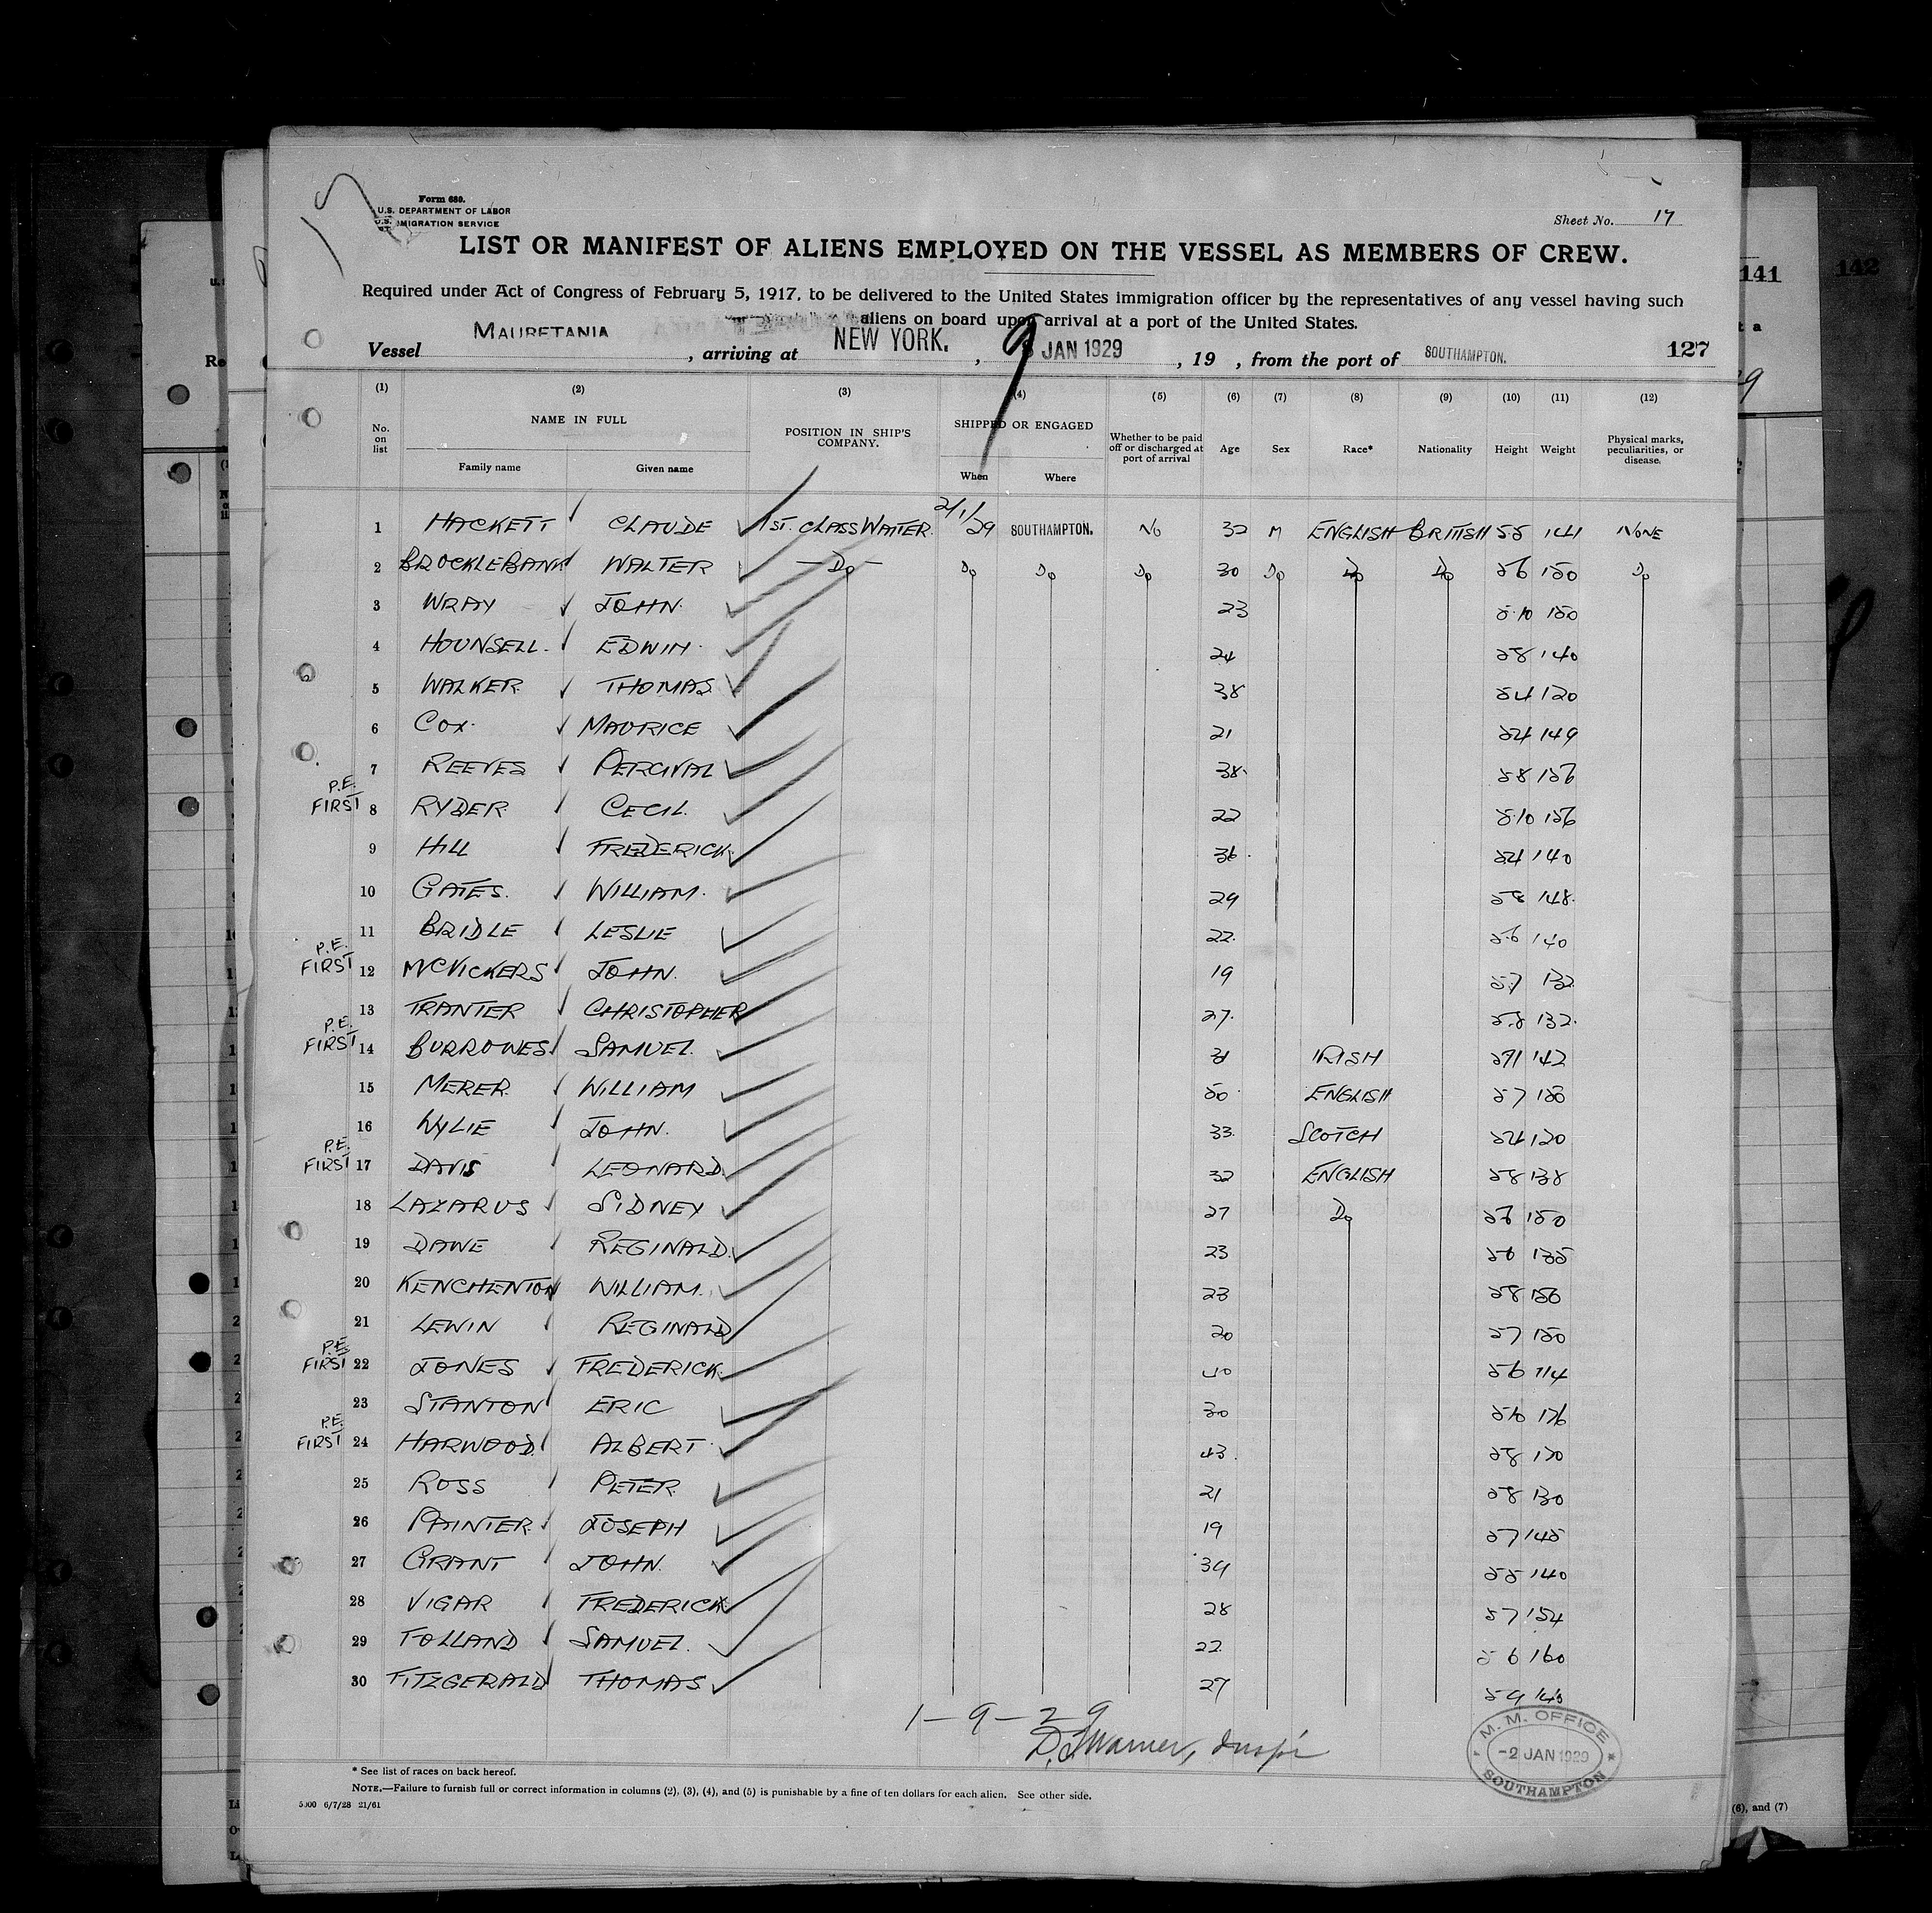 Form 680.
U.S. DEPARTMENT OF LABOR
IMMIGRATION SERVICE
Sheet No. 17
LIST OR MANIFEST OF ALIENS EMPLOYED ON THE VESSEL AS MEMBERS OF CREW.
Required under Act of Congress of February 5, 1917, to be delivered to the United States immigration officer by the representatives of any vessel having such
aliens on board upon arrival at a port of the United States.
Vessel MAURETANIA, arriving at NEW YORK. , 9 JAN 1929, 19 , from the port of SOUTHAMPTON. 127
141
142
(1) (2) (3) (4) (5) (6) (7) (8) (9) (10) (11) (12)
No. on list NAME IN FULL Family name Given name POSITION IN SHIP'S COMPANY. SHIPPED OR ENGAGED When Where Whether to be paid off or discharged at port of arrival Age Sex Race* Nationality Height Weight Physical marks, peculiarities, or disease.
1 HACKETT CLAUDE 1ST. CLASS WAITER. 2/1/29 SOUTHAMPTON. NO 32 M ENGLISH BRITISH 5.5 141 NONE
2 BROCKLEBANK WALTER Do Do Do Do 30 Do Do Do 56 150 Do
3 WRAY JOHN. 23 5.10 150
4 HOUNSELL. EDWIN. 24 58 140
5 WALKER. THOMAS. 38 54 120
6 COX. MAURICE 21 54 149
7 REEVES PERCIVAL 38 58 156
P.E. FIRST 8 RYDER. CECIL. 22 5.10 156
9 HILL FREDERICK. 36 54 140
10 GATES. WILLIAM. 29 58 148.
11 BRIDLE LESLIE 22. 5.6 140
P.E. FIRST 12 MCVICKERS JOHN. 19 5.7 132
13 TRANTER CHRISTOPHER 27. 5.8 132.
P.E. FIRST 14 BURROWES SAMUEL. 31 IRISH 142
15 MERER. WILLIAM 50 ENGLISH 57 150
16 WYLIE JOHN. 33. SCOTCH 54 120
P.E. FIRST 17 DAVIS LEONARD. 32 ENGLISH 58 138
18 LAZARUS SIDNEY 27 Do 56 150
19 DAWE REGINALD. 23 56 135
20 KENCHENTON WILLIAM. 23 58 150
21 LEWIN REGINALD 20 57 150
P.E. FIRST 22 JONES FREDERICK. 40 56 114
23 STANTON ERIC 30 510 176
P.E. FIRST 24 HARWOOD. ALBERT. 43. 58 170
25 ROSS PETER. 21 58 130
26 PAINTER. JOSEPH 19 57 145
27 GRANT JOHN. 34 55 140
28 VIGAR FREDERICK. 28 57 154
29 TOLLAND SAMUEL. 22. 56 160
30 FITZGERALD THOMAS 27 59
1-9-29
Warner, Insp'r
M. M. OFFICE
-2 JAN 1929
SOUTHAMPTON
* See list of races on back hereof.
NOTE.—Failure to furnish full or correct information in columns (2), (3), (4), and (5) is punishable by a fine of ten dollars for each alien. See other side.
5000 6/7/28 21/61
(6), and (7)